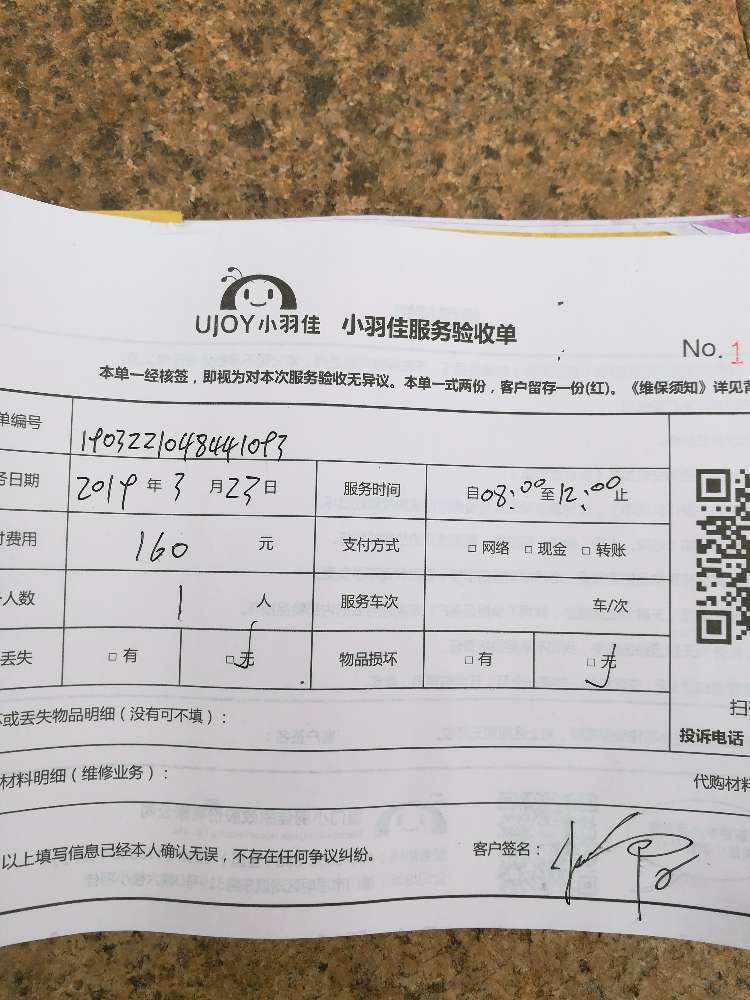 UJOY小羽佳 小羽佳服务验收单
No. 1
本单一经核签，即视为对本次服务验收无异议。本单一式两份，客户留存一份(红)。《维保须知》详见背
单编号 1903221048441093
务日期 2019 年 3 月 23 日 服务时间 自08:00至12:00止
付费用 160 元 支付方式 □ 网络 □ 现金 □ 转账
人数 1 人 服务车次 车/次
丢失 □ 有 □ 无 物品损坏 □ 有 □ 无
坏或丢失物品明细（没有可不填）：
扫
投诉电话
材料明细（维修业务）： 代购材料
以上填写信息已经本人确认无误，不存在任何争议纠纷。 客户签名：